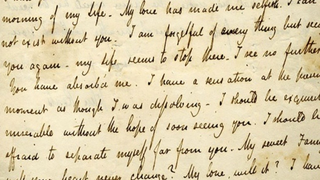 morning of my Life. My love has made me selfish. I can
not exist without you. I am forgetful of every thing but seeing
you again. my life seems to stop there. I see no further.
You have absorb'd me. I have a sensation at the present
moment as though I was dissolving. I should be exquisitely
miserable without the hope of soon seeing you. I should be
affraid to separate myself far from you. My sweet Fanny
your heart never change? My love, will it? I have